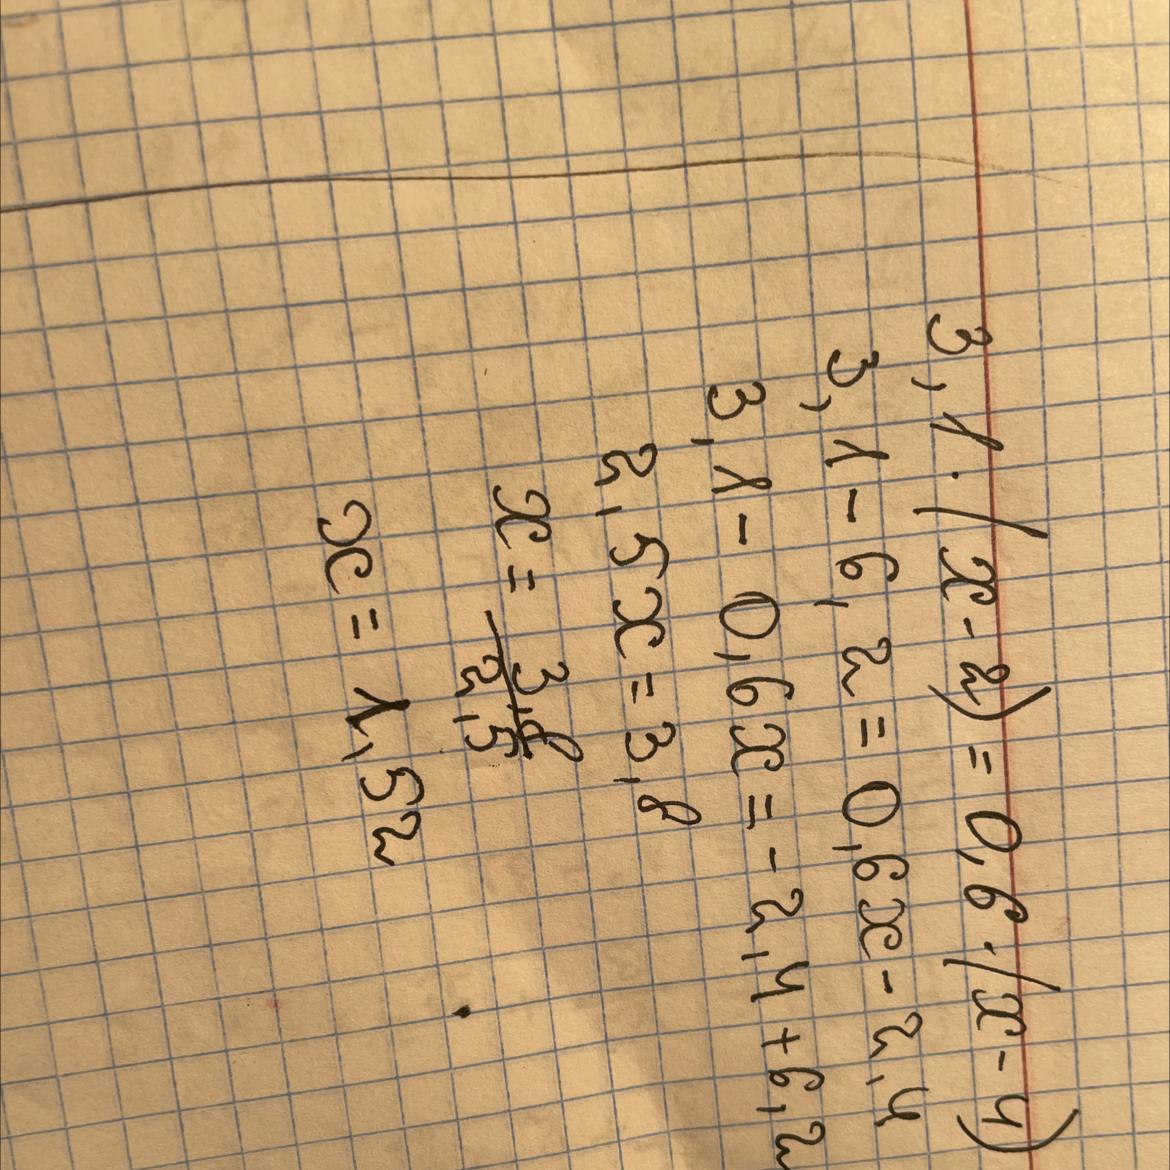 3,1·(x-2)=0,6·(x-4)
3,1-6,2=0,6x-2,4
3,1-0,6x=-2,4+6,2
2,5x=3,8
x=3,8/2,5
x=1,52